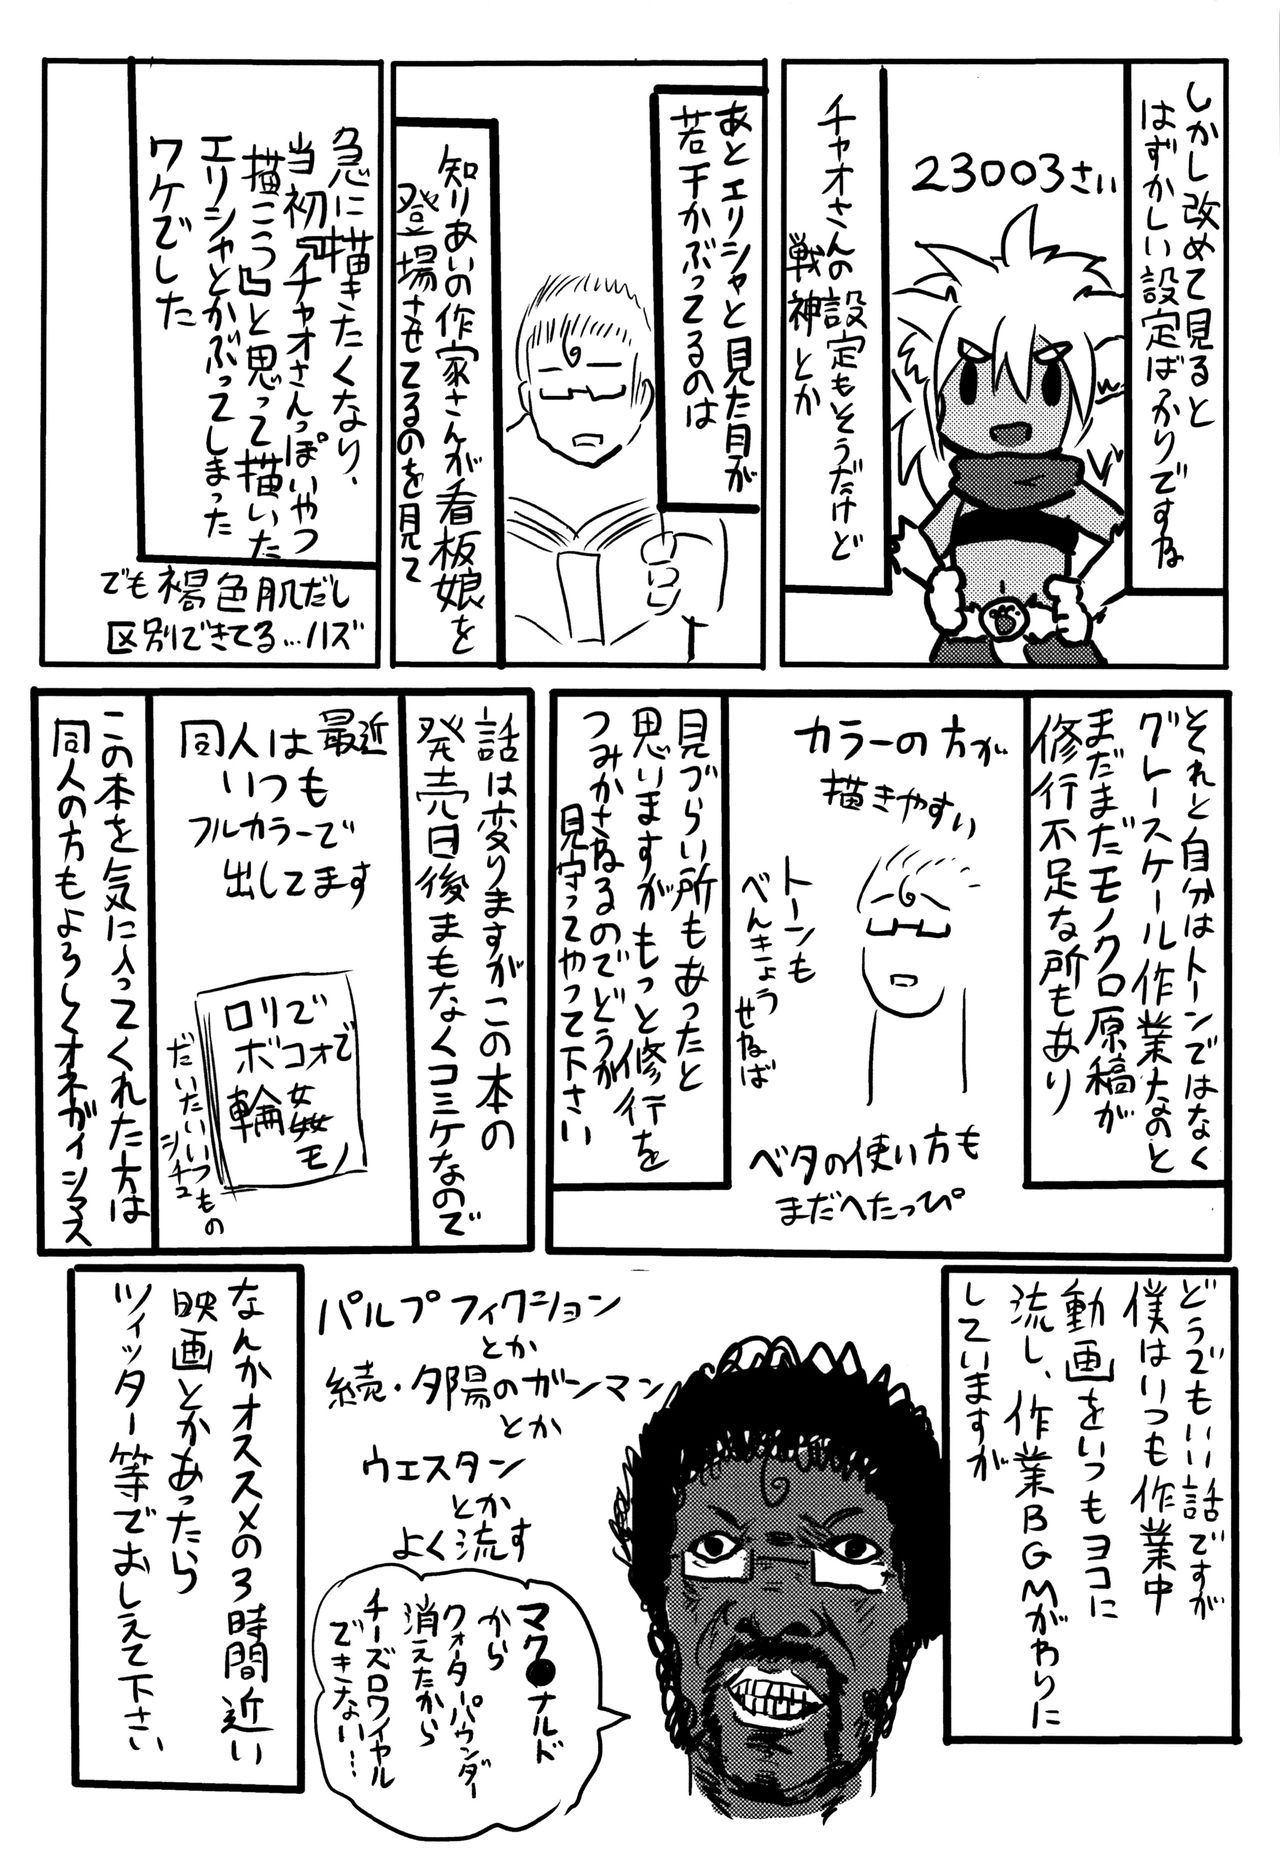 しかし改めて見ると
はずかしい設定ばかりですね
23003さい
チャオさんの設定もそうだけど
戦神とか
あとエリシャと見た目が
若干かぶってるのは
知りあいの作家さんが看板娘を
登場させてるのを見て
急に描きたくなり、
当初『チャオさんっぽいやつ
描こう』と思って描いた
エリシャとかぶってしまった
ワケでした
でも褐色肌だし
区別できてる…ハズ
それと自分はトーンではなく
グレースケール作業なのと
まだまだモノクロ原稿が
修行不足な所もあり
カラーの方が
描きやすい
トーンも
べんきょう
せねば
ベタの使い方も
まだへたっぴ
見づらい所もあったと
思いますがもっと修行を
つみかさねるのでどうか
見守ってやって下さい
話は変りますがこの本の
発売日後まもなくコミケなので
最近
同人は
いつも
フルカラーで
出してます
ロリで
ボコォで
輪姦
モノ
だいたいいつもの
シチュ
この本を気に入ってくれた方は
同人の方もよろしくオネガイシマス
どうでもいい話ですが
僕はいつも作業中
動画をいつもヨコに
流し、作業BGMがわりに
していますが
パルプフィクション
とか
続・夕陽のガンマン
とか
ウエスタン
とか
よく流す
マク●ナルド
から
クォーターパウンダー
消えたから
チーズロワイヤル
できない…
なんかオススメの3時間近い
映画とかあったら
ツイッター等でおしえて下さい